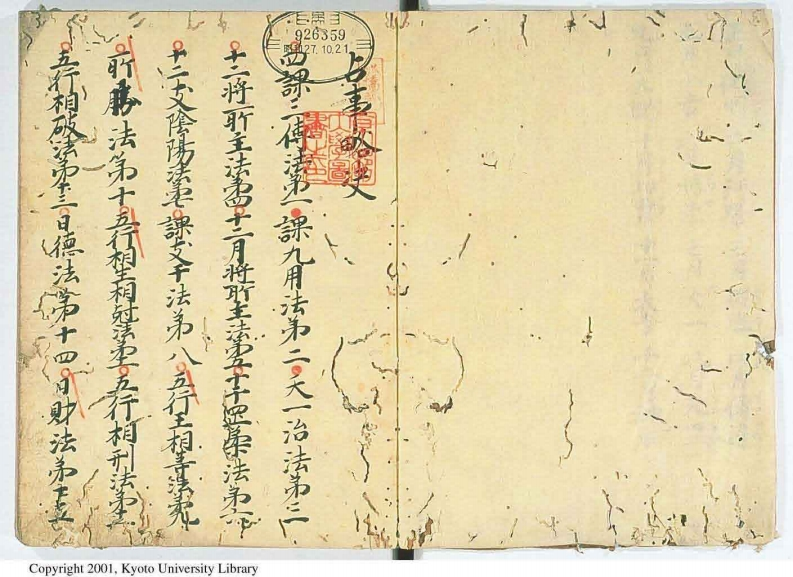 926359
27.10.21
占事略决
四課三傳法第一 課九用法第二 天一治法第三
十二将所主法第四 十二月将所主法第五 十干法第六
十二支陰陽法第七 課支干法第八 五行王相等法第九
所勝法第十 五行相生相尅法第十一 五行相刑法第十二
五行相破法第十三 日德法第十四 日財法第十五
Copyright 2001, Kyoto University Library